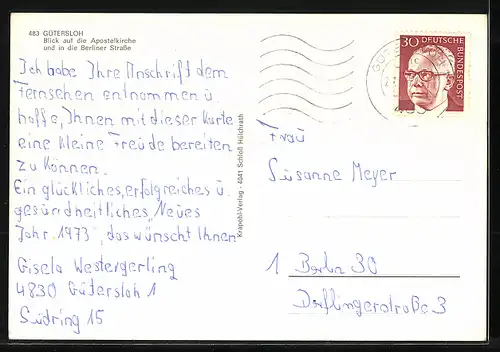 483 GÜTERSLOH
Blick auf die Apostelkirche
und in die Berliner Straße
Ich habe Ihre Anschrift dem
Fernsehen entnommen u.
hoffe, Ihnen mit dieser Karte
eine kleine Freude bereiten
zu können.
Ein glückliches, erfolgreiches u.
gesundheitliches „Neues
Jahr 1973", das wünscht Ihnen
Gisela Westergerling
4830 Gütersloh 1
Südring 15
Krapohl-Verlag · 4041 Schloß Hülchrath
30 DEUTSCHE
BUNDESPOST
Frau
Susanne Meyer
1 Berlin 30
Derflingerstraße 3